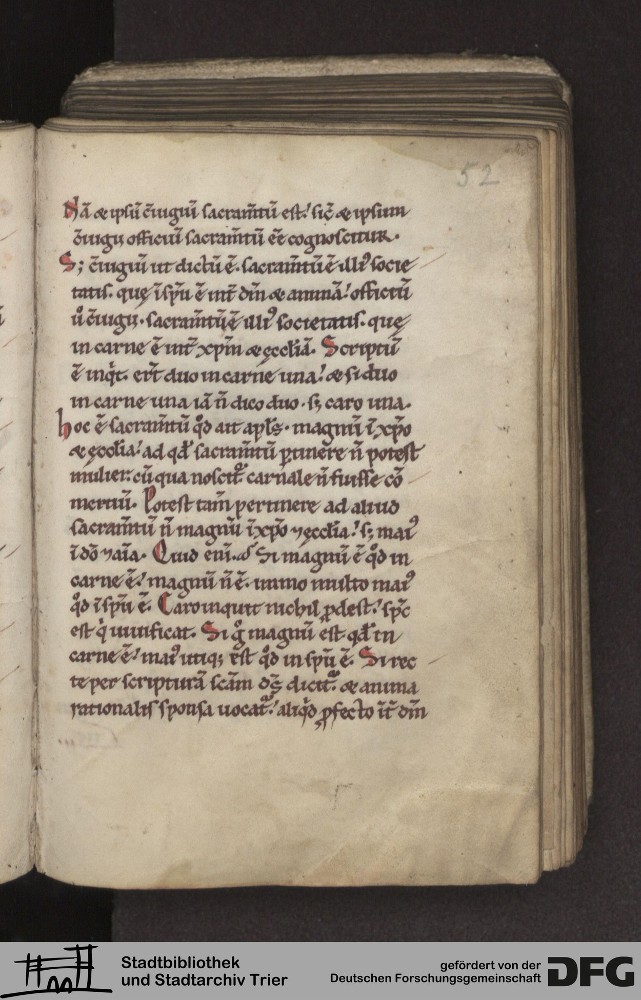 52
Nā & ipsū ꝯiugiū sacram̄tū est. sic̄ & ipsum
ꝯiugij officiū sacram̄tū ēē cognoscitur.
S; ꝯiugiū ut dictū ē. sacram̄tū ē illiꝰ socie
tatis. quę ī sp̄u ē int̄ dm̄ & animā. officiū
ů ꝯiugij. sacram̄tū ē illiꝰ societatis. quę
in carne ē int̄ xp̄m & ęccl̄iā. Scriptū
ē inq̇t. er̄t duo in carne una. & si duo
in carne una iā n̄ dico duo. s; caro una.
hoc ē sacram̄tū q̇d ait ap̄ls. magnū ī xp̄o
& ęccl̄ia. ad qd̄ sacram̄tū ꝑtinere n̄ potest
mulier. cū qua noscit̄ carnale n̄ fuisse cō
mertiū. Potest tam̄ pertinere ad aliud
sacram̄tū n̄ magnū ī xp̄o ⁊ ęccl̄ia. s; maiꝰ
ī dō ⁊ aīa. Quid eni. Si magnū ē q̇d in
carne ē. magnū n̄ ē. immo multo maiꝰ
q̇d ī sp̄u ē. Caro inquit nichil ꝓdest. sp̄c
est q̇ uiuificat. Si g̊ magnū est qd̄ in
carne ē. maiꝰ utiq; est q̇d in sp̄u ē. Si rec
te per scripturā scām ds̄ dicit̄. & anima
rationalis sponsa uocat̄. aliq̇d ꝓfecto īt̄ dm̄
Stadtbibliothek
und Stadtarchiv Trier
gefördert von der
Deutschen Forschungsgemeinschaft
DFG